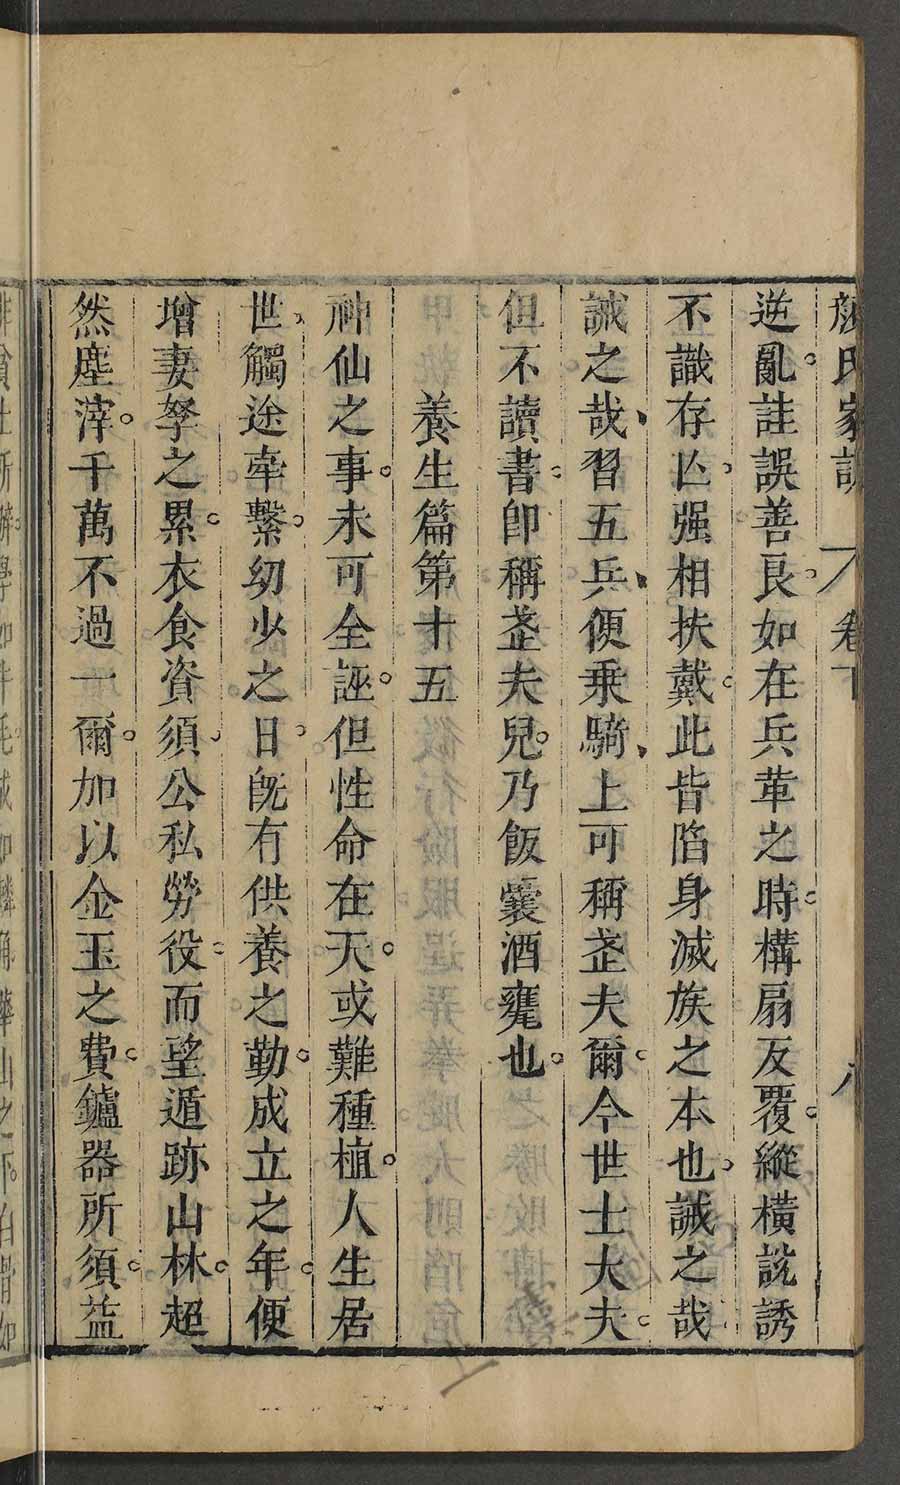 顏氏家訓 卷下 八
逆亂。詿誤善良。如在兵革之時。構扇反覆。縱橫說誘
不識存亡。强相扶戴。此皆陷身滅族之本也。誡之哉
誡之哉、習五兵、便乘騎、上可稱武夫爾。今世士大夫。
但不讀書。卽稱武夫兒。乃飯囊酒甕也。
養生篇第十五
神仙之事。未可全誣。但性命在天。或難種植。人生居
世、觸途牽繫。幼少之日。旣有供養之勤。成立之年。便
增妻孥之累。衣食資須、公私勞役。而望遁跡山林。超
然塵滓。千萬不過一爾。加以金玉之費。鑪器所須。益
非貧士所辦。學如牛毛。成如麟角。華山之下。白骨如